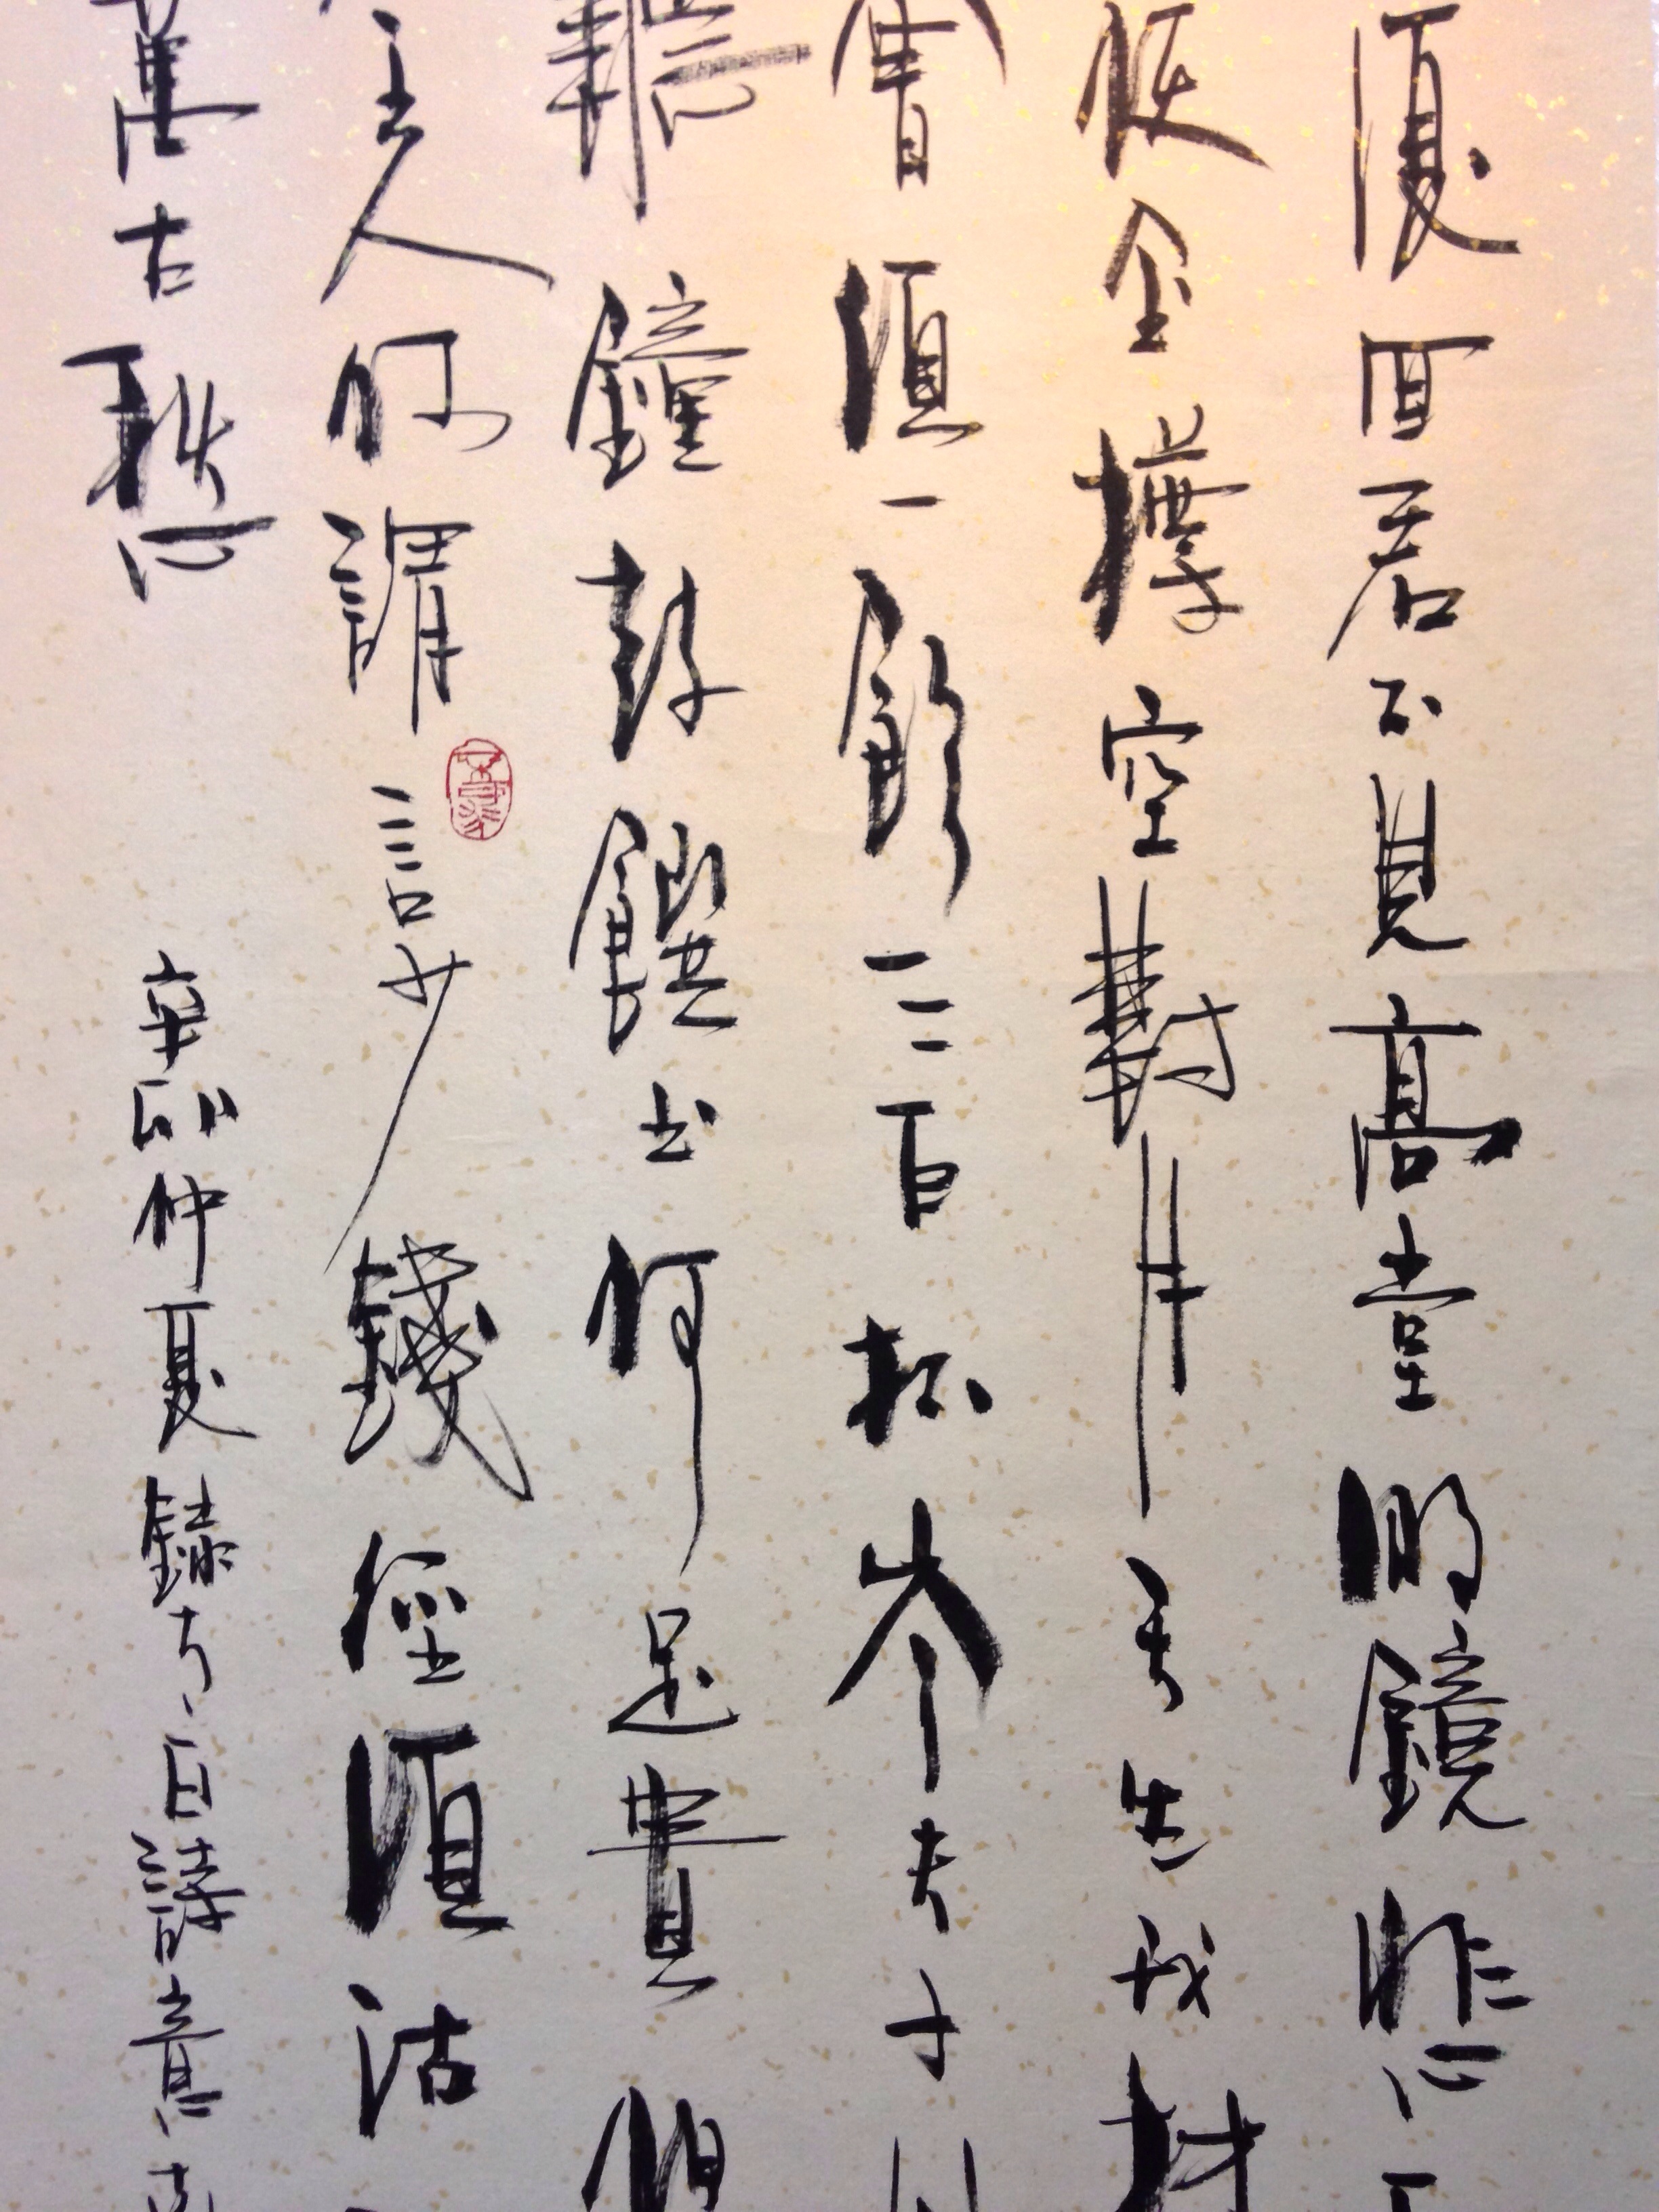 復回君不見高堂明鏡悲
使金樽空對月天生我材
會須一飲三百杯岑夫子
聽鐘鼓饌玉何足貴但
主人何謂言少錢徑須沽
萬古愁
辛卯仲夏錄白詩意